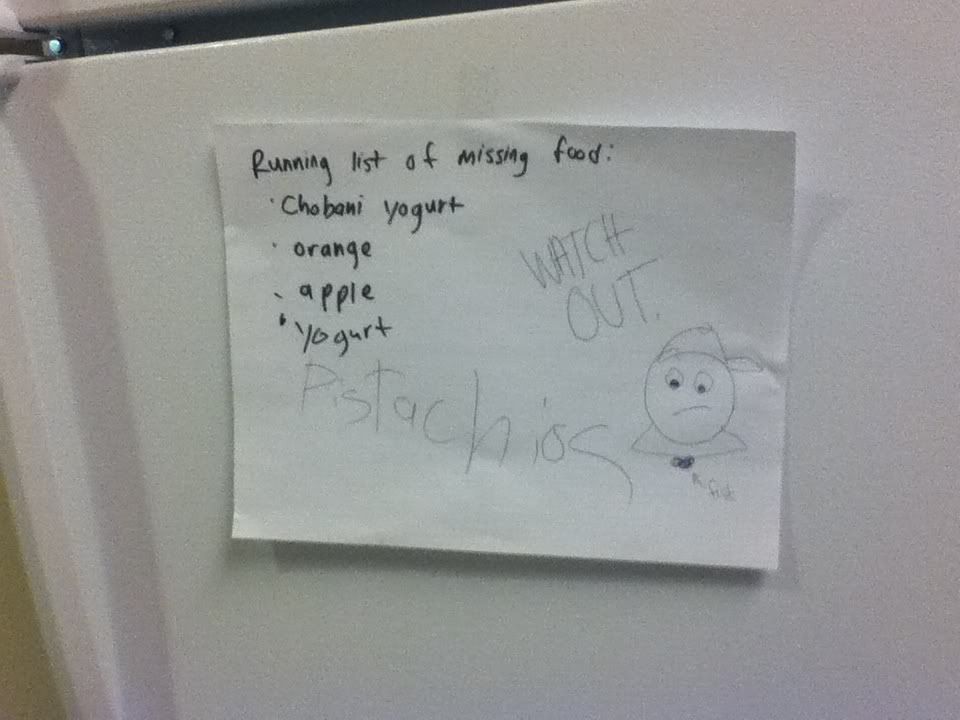 Running list of missing food:
· Chobani yogurt
· orange
· apple
· Yogurt
Pistachios
WATCH
OUT.